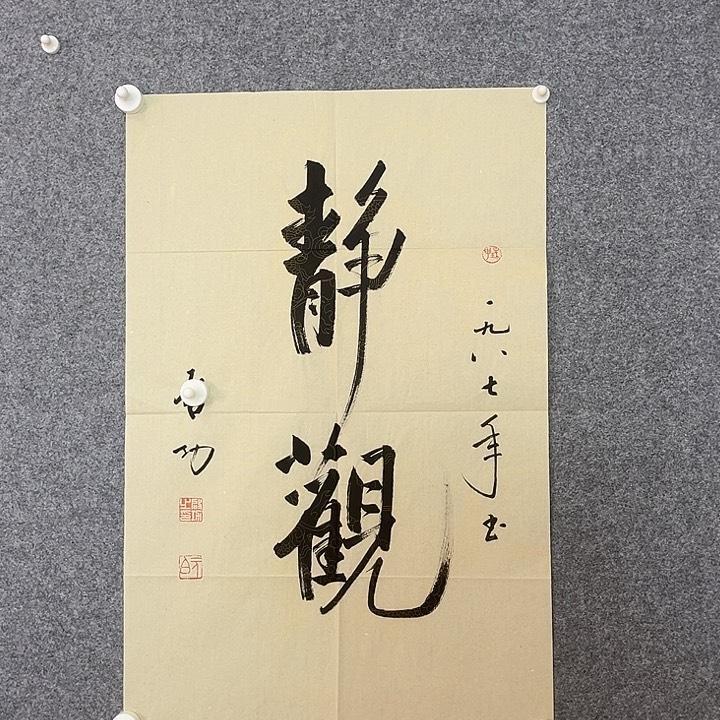 一九八七年书
静觀
启功